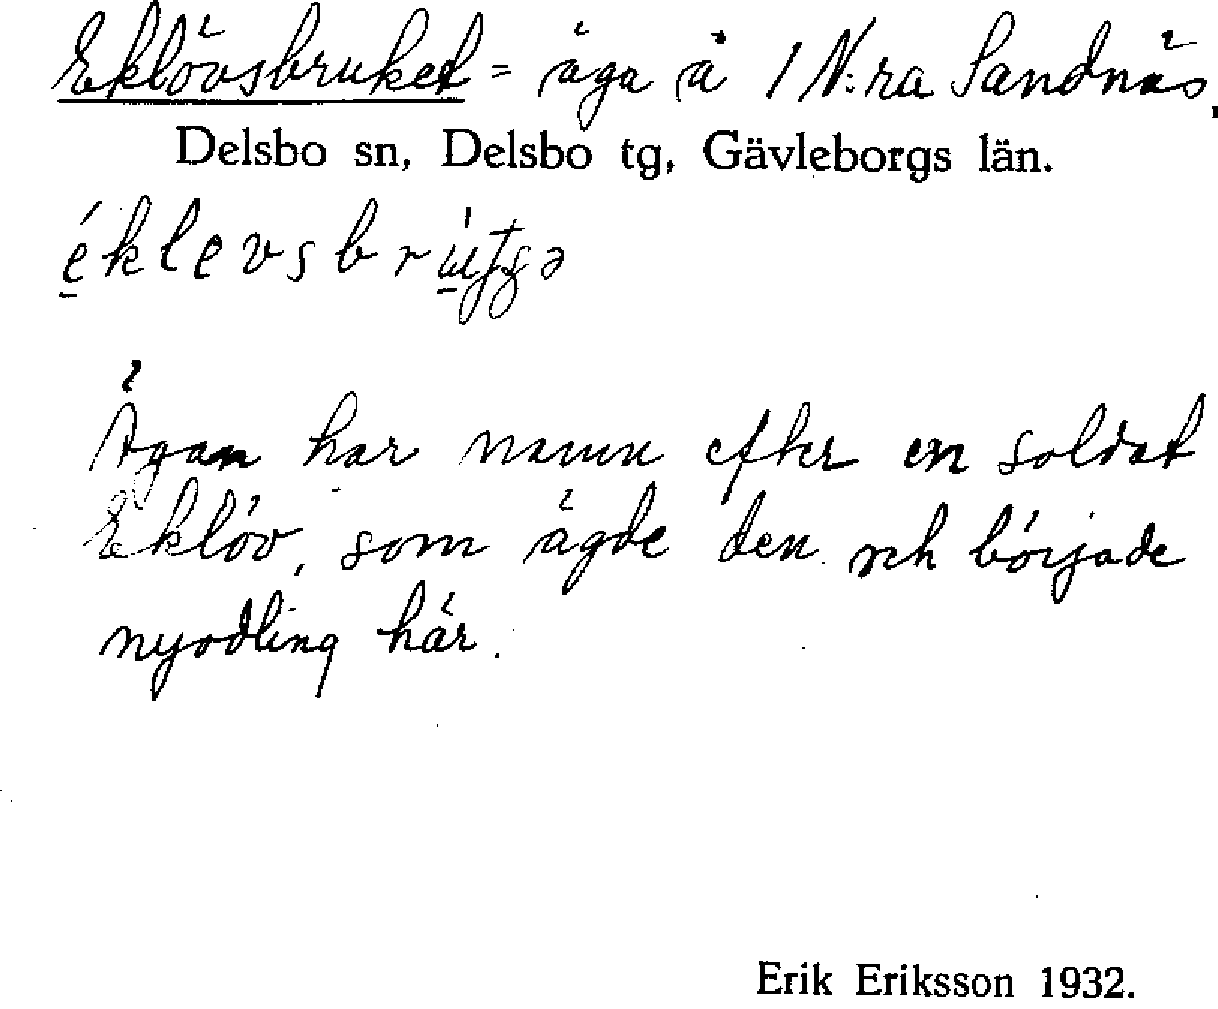 Eklövsbruket = äga å 1 N:ra Sandnäs,
Delsbo sn, Delsbo tg, Gävleborgs län.
éklevsbr
Ägan har namn efter en soldat
Eklöv, som ägde den och började
nyodling här.
Erik Eriksson 1932.